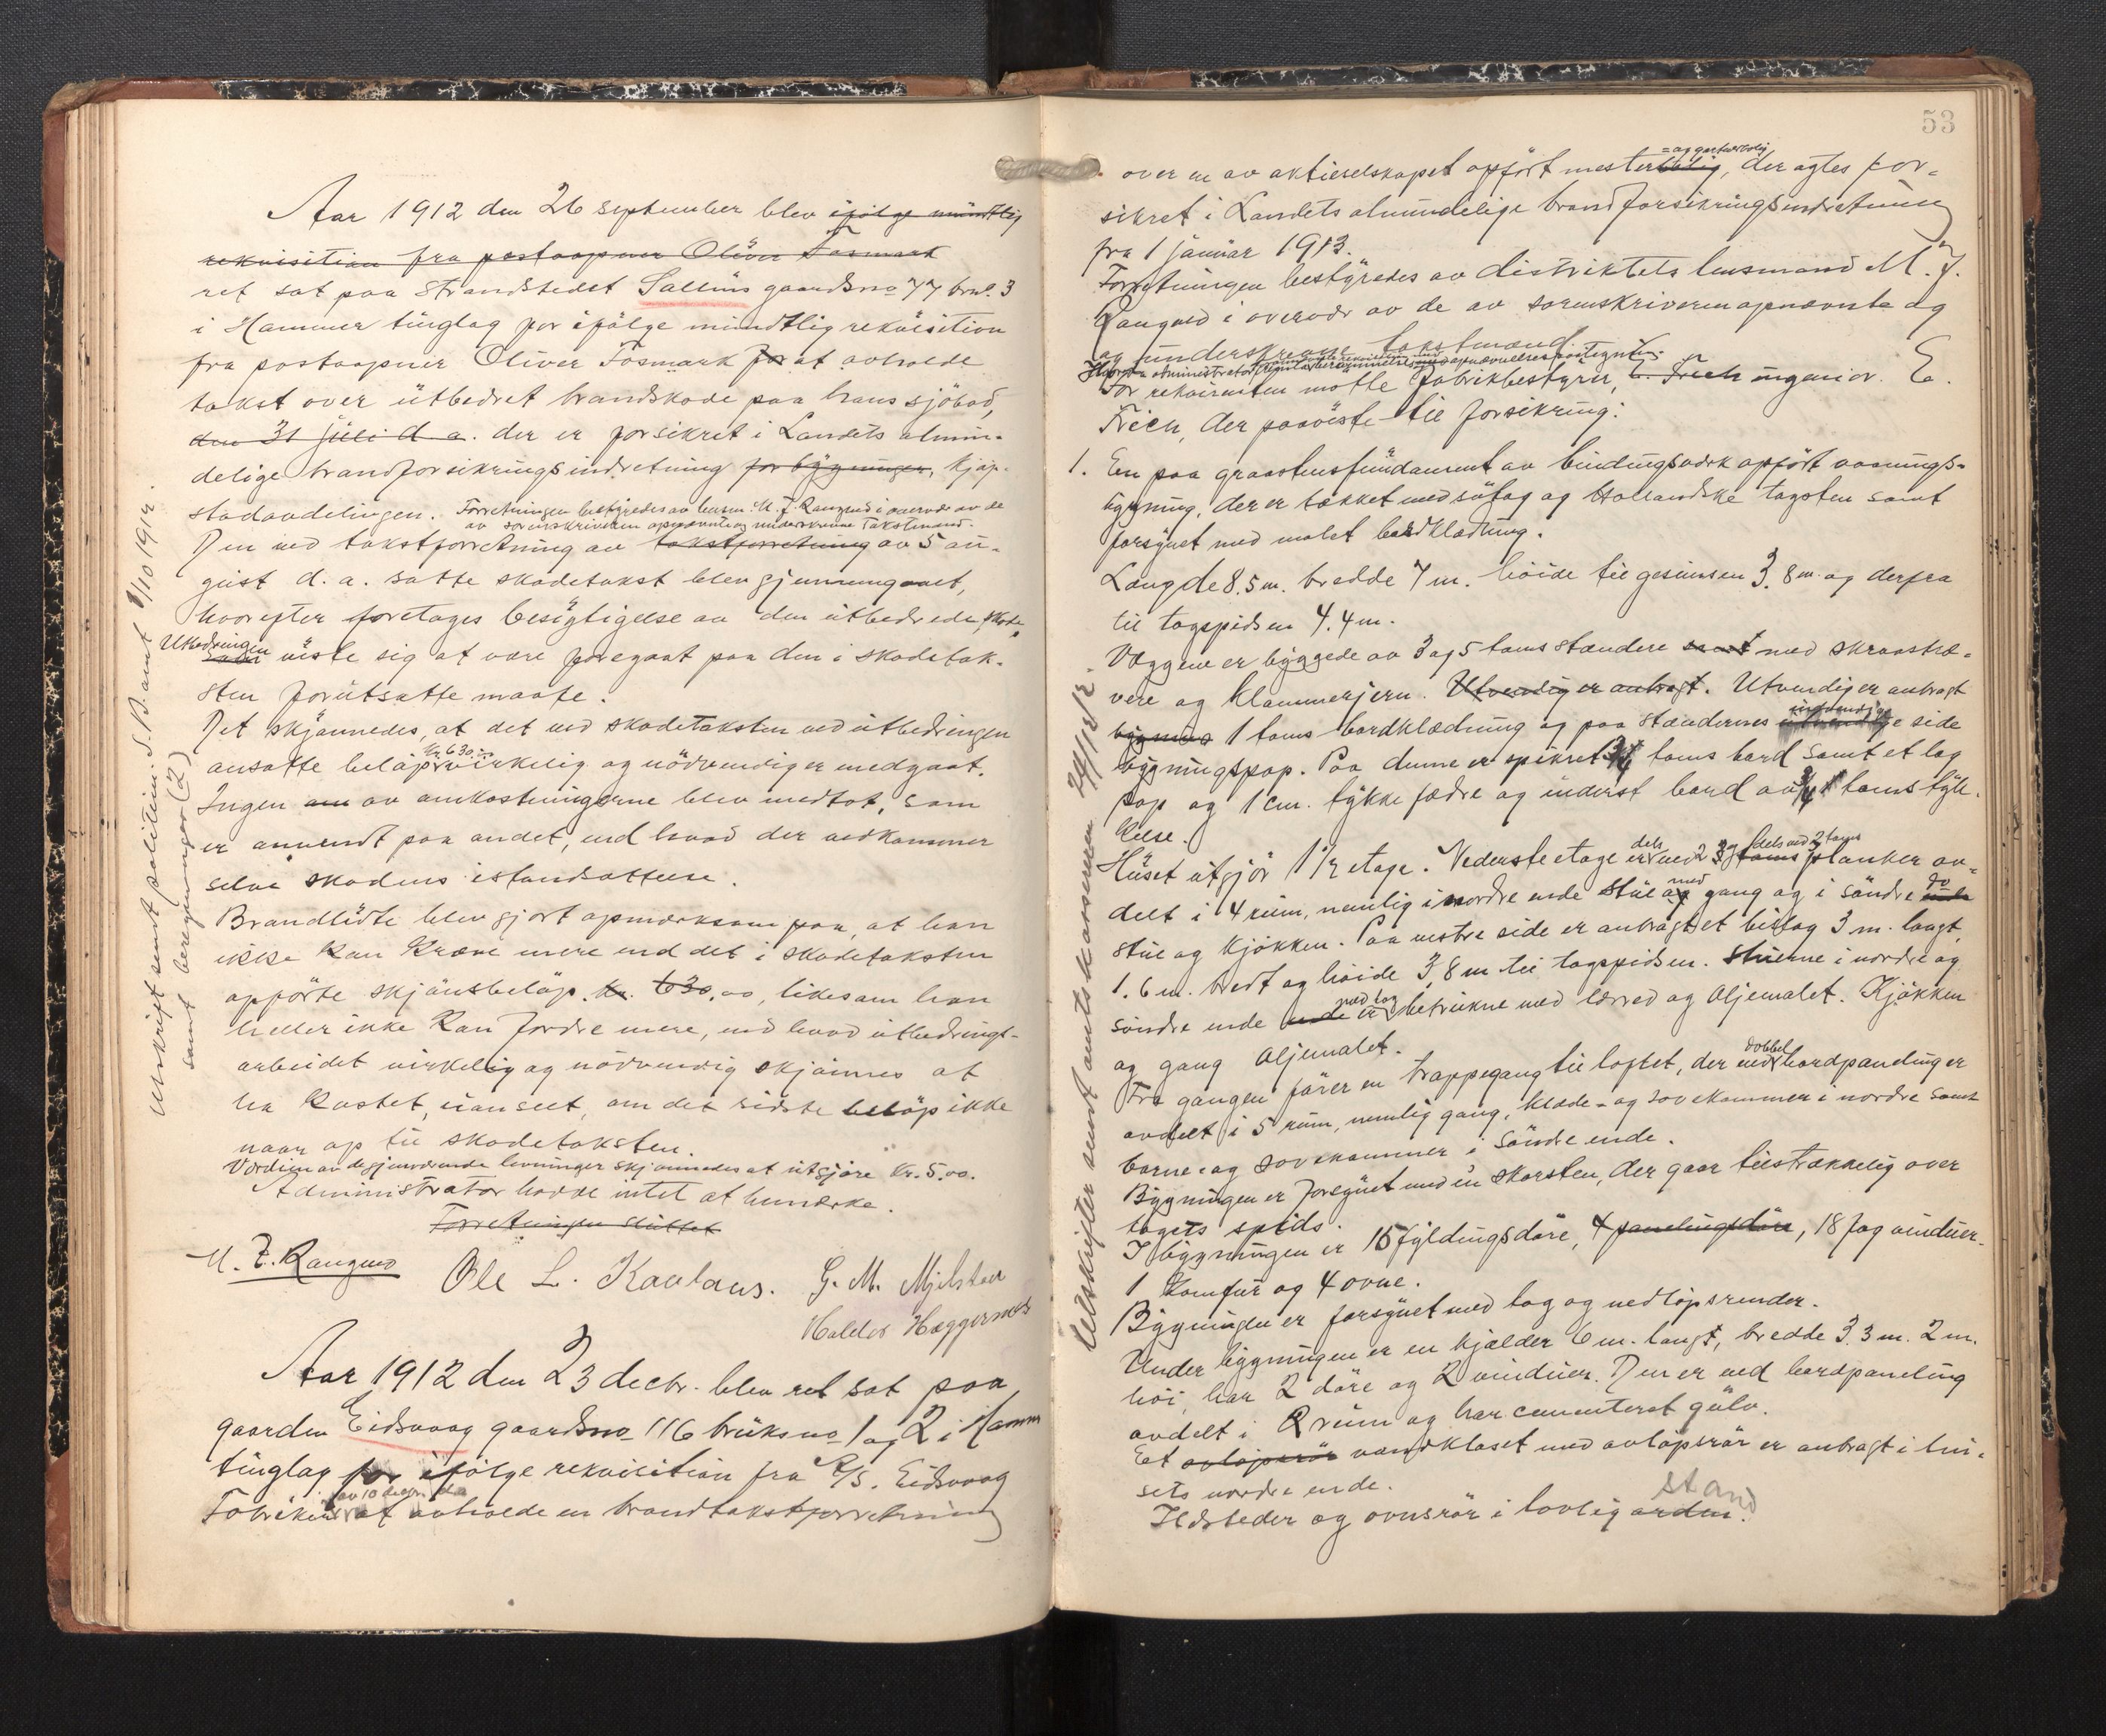 Aar 1912 den 26 september blev ifølge mundtlig
rekvisition fra postaapner Oliver Fosmark
ret sat paa strandstedet Salhus gaardsno 77 brno. 3
i Hammer tinglag for ifølge mundtlig rekvisition
fra postaapner Oliver Fosmark for at avholde
takst over utbedret brandskade paa hans sjøbod,
den 31 juli d. a. der er forsikret i Landets almin-
delige brandforsikringsindretning for bygninger, kjøp-
stadavdelingen. Forretningen bestyredes av lensm. M. J. Rangnes i overvær av de
av sorenskriveren opnævnte og underskrevne Takstmænd.
Den ved takstforretning av takstforretning av 5 au-
gust d. a. satte skadetakst blev gjennemgaaet,
hvorefter foretages besigtigelse av den utbedrede skade.
Utbedringen viste sig at være foregaat paa den i skadetak-
sten forutsatte maate.
Det skjønnedes, at det ved skadetaksten ved utbedringen
ansatte beløp kr 630.00 virkelig og nødvendig er medgaat.
Ingen av omkostningerne blev medtat, som
er anvendt paa andet, end hvad der vedkommer
selve skadens istandsættelse.
Brandlidte blev gjort opmærksom paa, at han
ikke kan kræve mere end det i skadetaksten
opførte skjønsbeløp, kr. 630.00, likesom han
heller ikke kan fordre mere, end hvad utbedrings-
arbeidet virkelig og nødvendig skjønnes at
ha kostet, uanseet, om det sidste beløp ikke
naar op til skadetaksten.
Værdien av de gjenværende levninger skjønnedes at utgjøre kr. 5.00.
Administrator havde intet at bemerke.
Forretningen sluttet
M. J. Rangnes Ole L. Kavlaas. G. M. Mjelstad
Haldor Hæggernæs
Aar 1912 den 23 decbr. blev ret sat paa
gaarden Eidsvaag gaardsno 116 bruksno 1 og 2 i Hammer
tinglag for ifølge rekvisition fra A/S. Eidsvaag
Fabriker av 10 decbr. d.a. at avholde en brandtakstforretning
Utskrift sendt politim. S. B. amt 1/10 1912.
samt beregninger (2)
53
over en av aktieselskapet opført mesterbolig, der agtes for-
sikret i Landets almindelige brandforsikringsindretning
fra 1 januar 1913.
Forretningen bestyredes av distriktets lensmand M. J.
Rangnes i overvær av de av sorenskriveren opnævnte og
og underskrevne takstmænd.
For rekvirenten møtte fabrikbestyrer, E. Friele ingeniør. E.
Friele, der paaviste til forsikring:
1. En paa graastensfundament av bindingsverk opført vaanings-
bygning, der er tækket med sutag og Hollandske tagsten samt
forsynet med malet bordklædning.
Længde 8.5 m. bredde 7 m. høide til gesimsen 3.8 m. og derfra
til tagspidsen 4.4 m.
Væggene er byggede av 3 og 5 toms stændere samt med skraastræ-
vere og klammerjern. Utvendig er anbragt. Utvendig er anbragt
bygnings 1 toms bordklædning og paa stændernes indvendige side
bygningspap. Paa denne er spikret 3/4 toms bord samt et lag
pap og 1 cm. tykke fædre og inderst bord av 3/4 toms tyk-
kelse.
Huset utgjør 1 1/2 etage. Nederste etage er dels med 3 og dels med 2 toms planker av-
delt i 4 rum, nemlig i nordre ende stue med gang og i søndre do
stue og kjøkken. Paa vestre side er anbragt et bislag 3 m. langt,
1.6 m. bredt og høide 3,8 m til tagspidsen. Stuerne i nordre og
søndre ende er med tag betrukne med lærred og Oljemalet. Kjøkken
og gang Oljemalet.
Fra gangen fører en trappegang til loftet, der med dobbel bordpaneling er
avdelt i 5 rum, nemlig gang, klæde- og sovekammer i nordre samt
barne- og sovekammer i søndre ende.
Bygningen er forsynet med en skorsten, der gaar tilstrækkelig over
tagets spids.
I bygningen er 15 fyldingsdøre, 4 panelingsdøre, 18 fag vinduer.
1 komfur og 4 ovne.
Bygningen er forsynet med tag og nedløpsrender.
Under bygningen er en kjælder 6 m. langt, bredde 3.3 m. 2 m.
høi, har 2 døre og 2 vinduer. Den er ved bordpaneling
avdelt i 2 rum og har cementeret gulv.
Et avløpsrør vandkloset med avløpsrør er anbragt i hu-
sets nordre ende.
Ildsteder og ovnsrør i lovlig orden. stand
Utskrifter sendt amtskasserer 24/12/12.